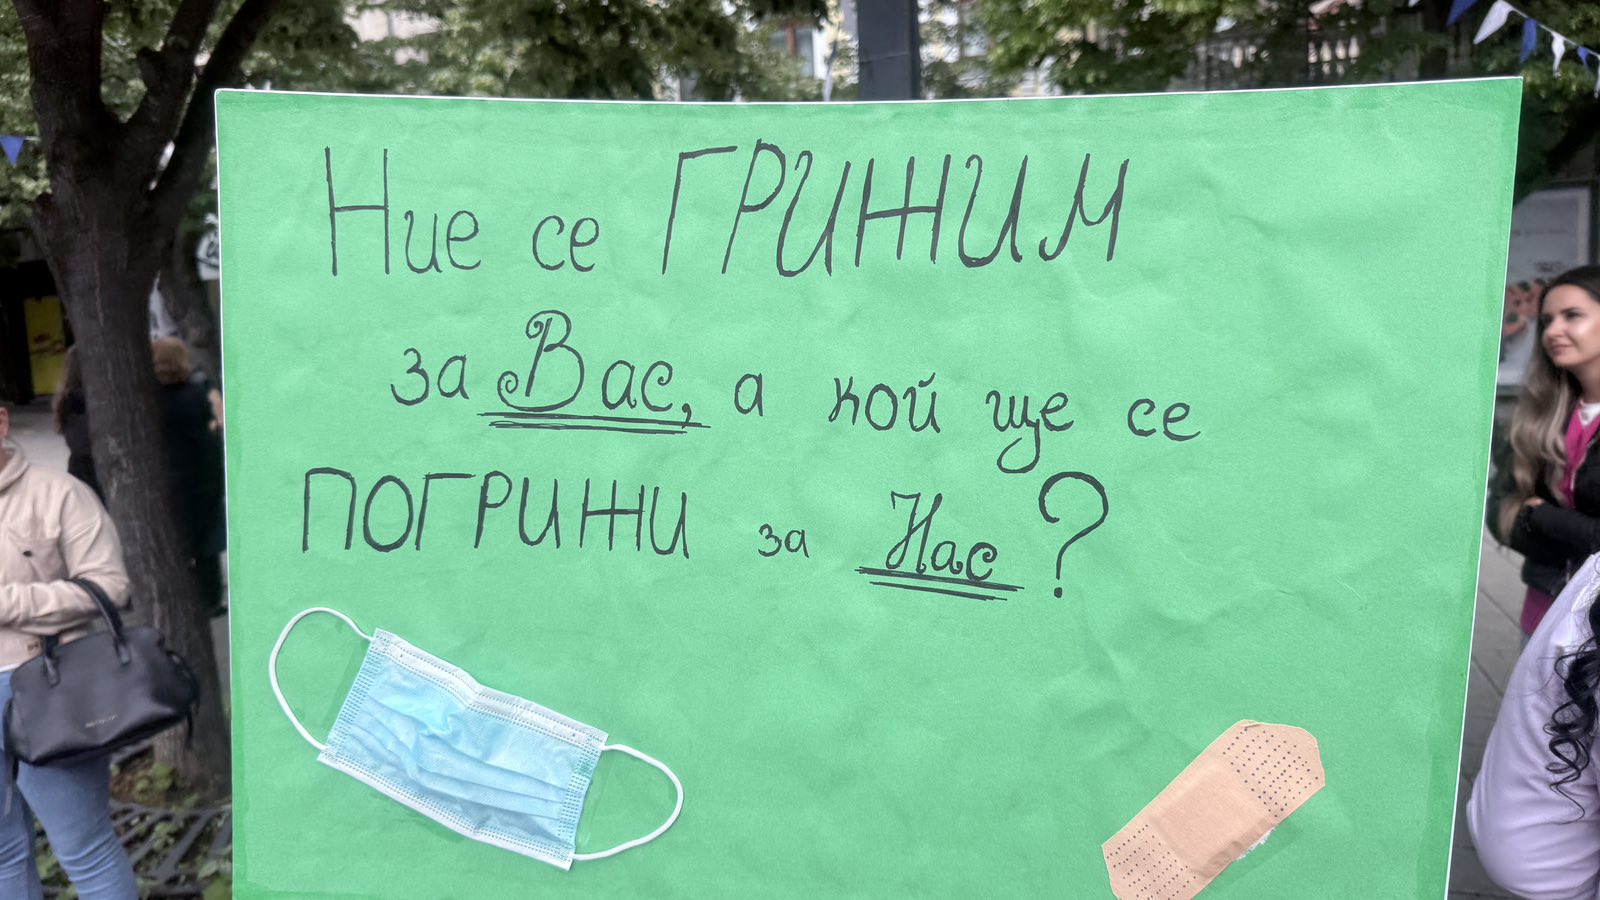 Ние се ГРИЖИМ
за Вас, а кой ще се
ПОГРИЖИ за Нас?